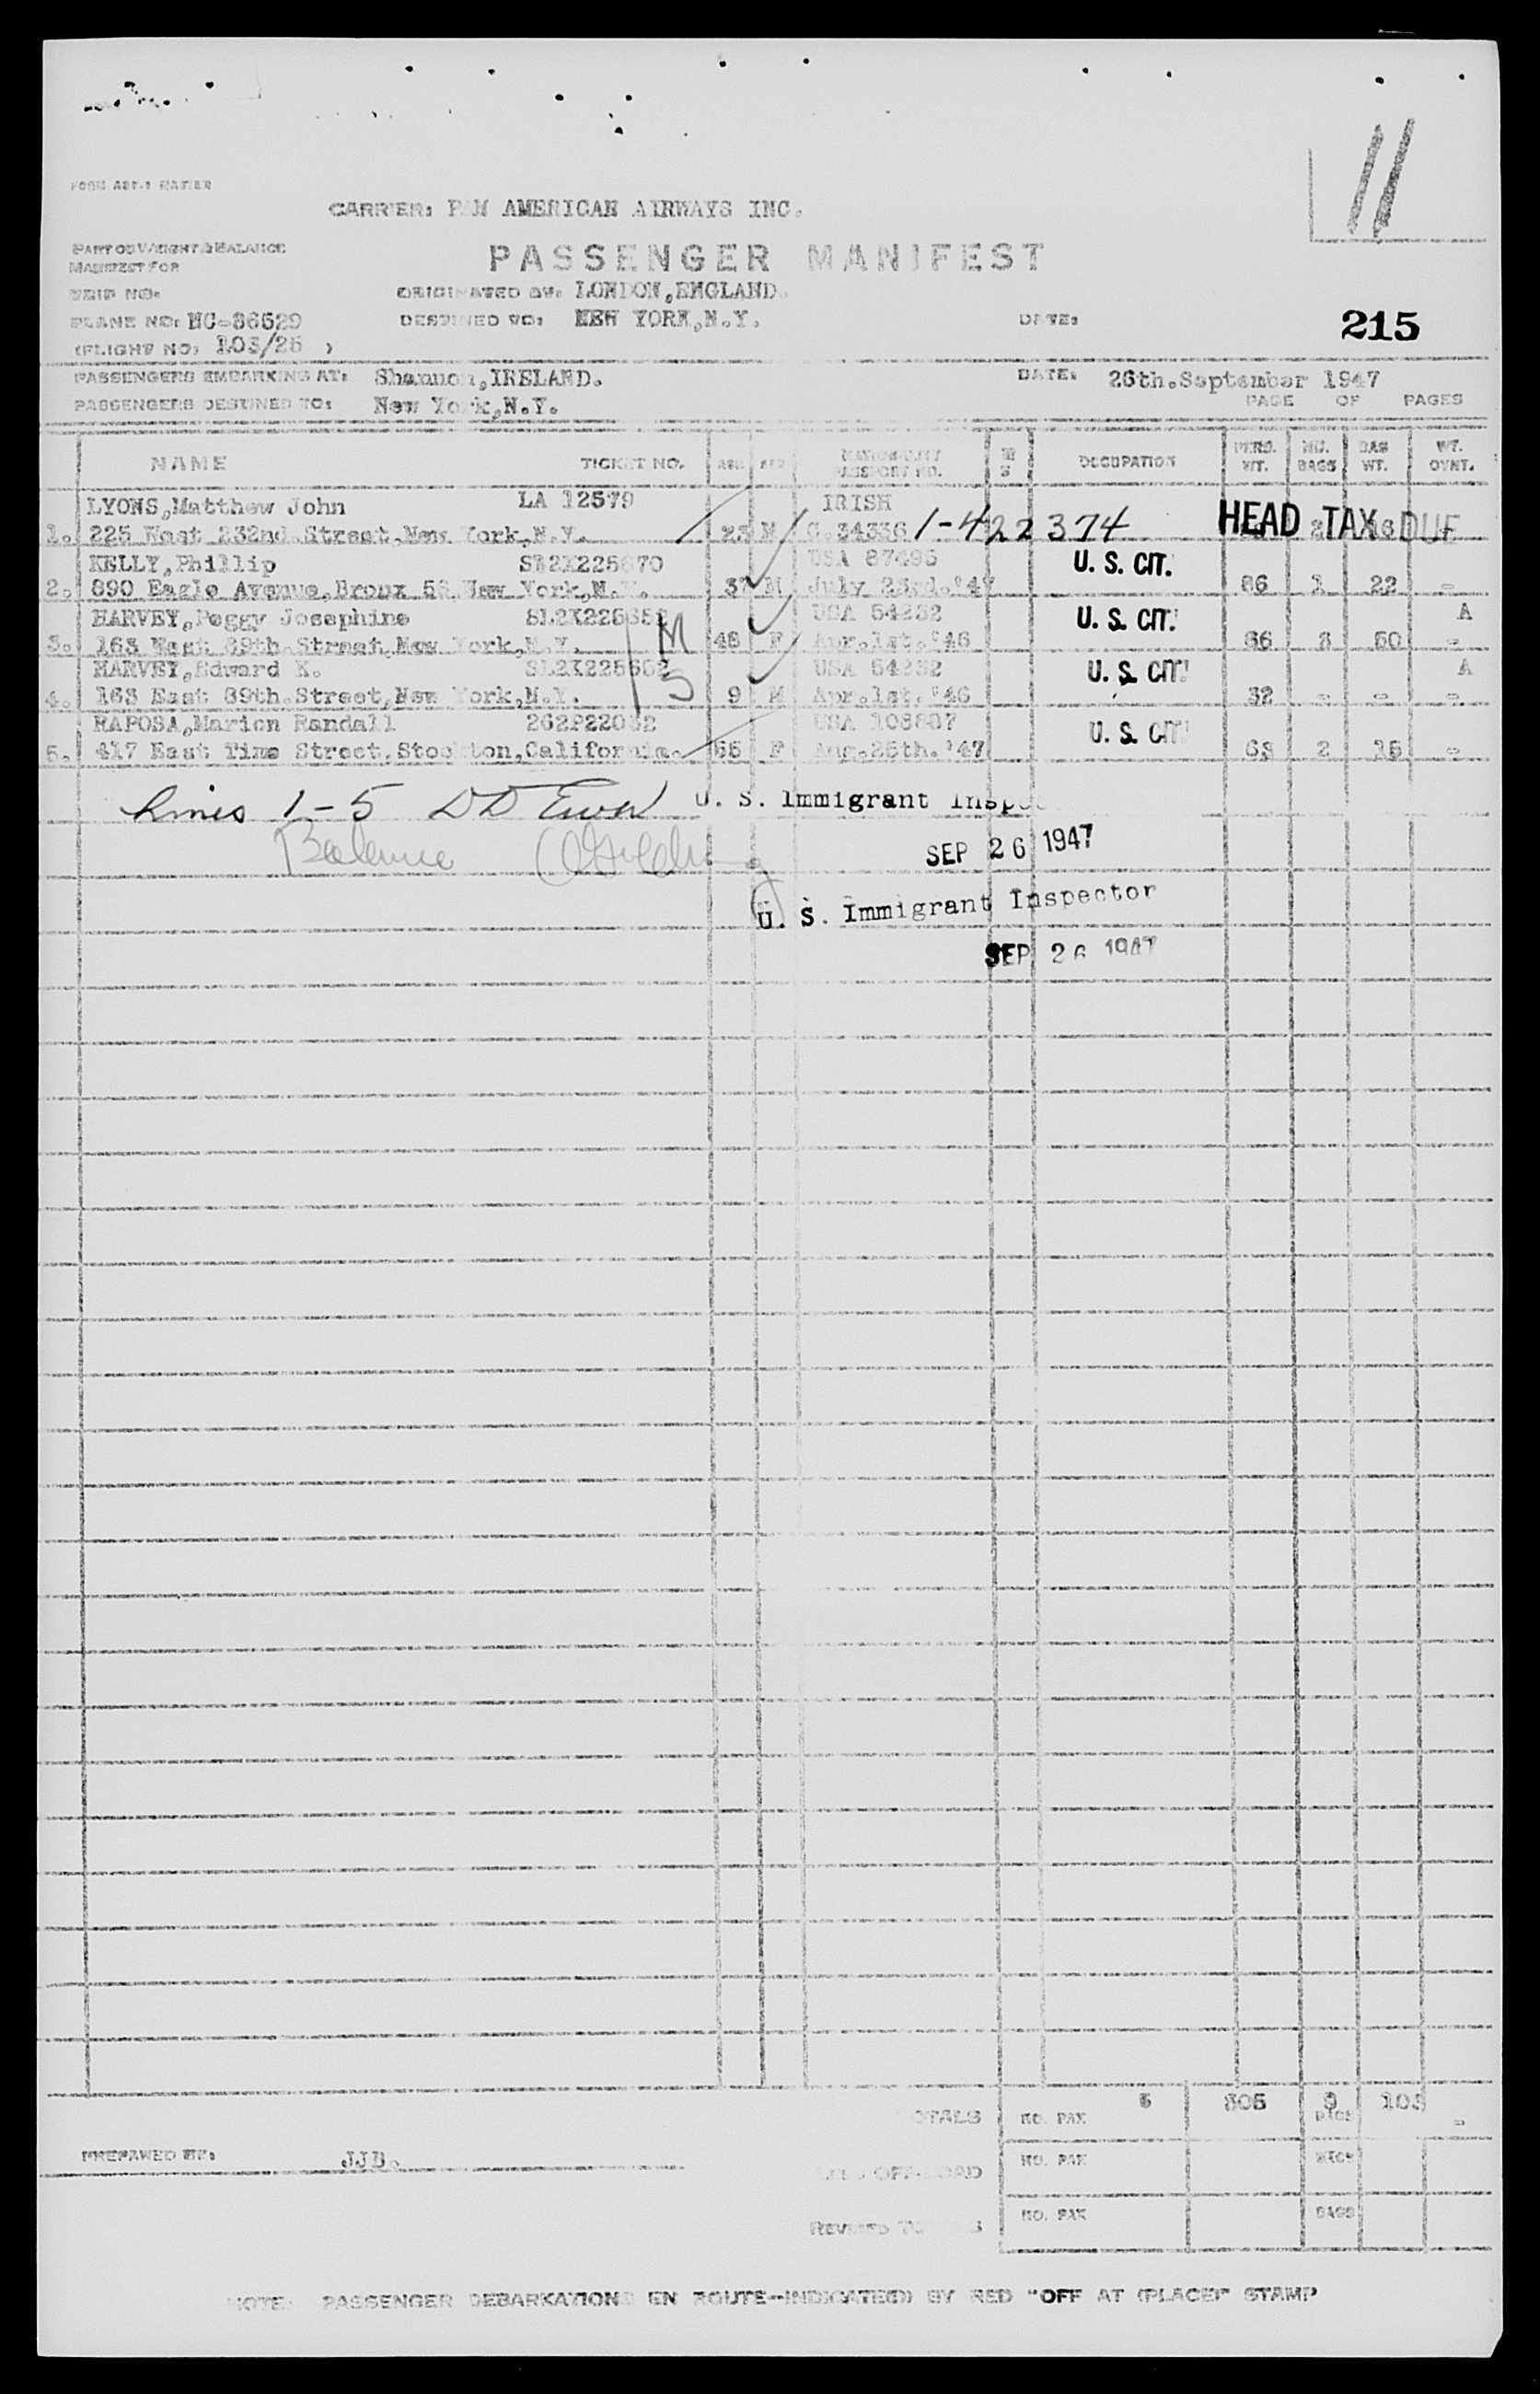 11
CARRIER: PAN AMERICAN AIRWAYS INC.
PART OF WEIGHT & BALANCE
MANIFEST FOR
PASSENGER MANIFEST
TRIP NO:
ORIGINATED AT: LONDON,ENGLAND.
PLANE NO: NC-86529
DESTINED TO: NEW YORK,N.Y.
DATE:
215
(FLIGHT NO) 103/25 )
PASSENGERS EMBARKING AT: Shannon,IRELAND.
DATE: 26th.September 1947
PASSENGERS DESTINED TO: New York,N.Y.
PAGE OF PAGES
NAME TICKET NO. AGE SEX NATIONALITY PASSPORT NO. OCCUPATION PERS. WT. NU. BAGS BAG WT. WT. OYNT.
LYONS,Matthew John LA 12579 IRISH
1. 225 East 232nd Street,New York,N.Y. 23 M C.34336 1-422374 HEAD TAX DUE
KELLY,Phillip USA 87496 U. S. CIT.
2. 890 Eagle Avenue,Bronx 56 New York,N.Y. 37 M July 23rd.'47 86 1 22 -
HARVEY,Peggy Josephine USA 54232 U. S. CIT. A
3. 163 East 89th Street,New York,N.Y. M 48 F Apr.1st.'46 86 3 50 -
HARVEY,Edward K. USA 54232 U. S. CIT. A
4. 163 East 89th.Street,New York,N.Y. S 9 M Apr.1st.'46 32 - - -
RAPOSA,Marion Randall USA U. S. CIT.
5. 417 East Street,Stockton,California. F Aug.26th.'47 2 -
Lines 1-5 U. S. Immigrant Inspec
Balance
SEP 26 1947
U. S. Immigrant Inspector
SEP 26 1947
TOTALS NO. PAX 5 305 BAGS
PREPARED BY: JJB.
NO. PAX BAGS
REVISED TOTALS NO. PAX BAGS
NOTE: PASSENGER DEBARKATIONS EN ROUTE--INDICATED BY RED "OFF AT (PLACE)" STAMP